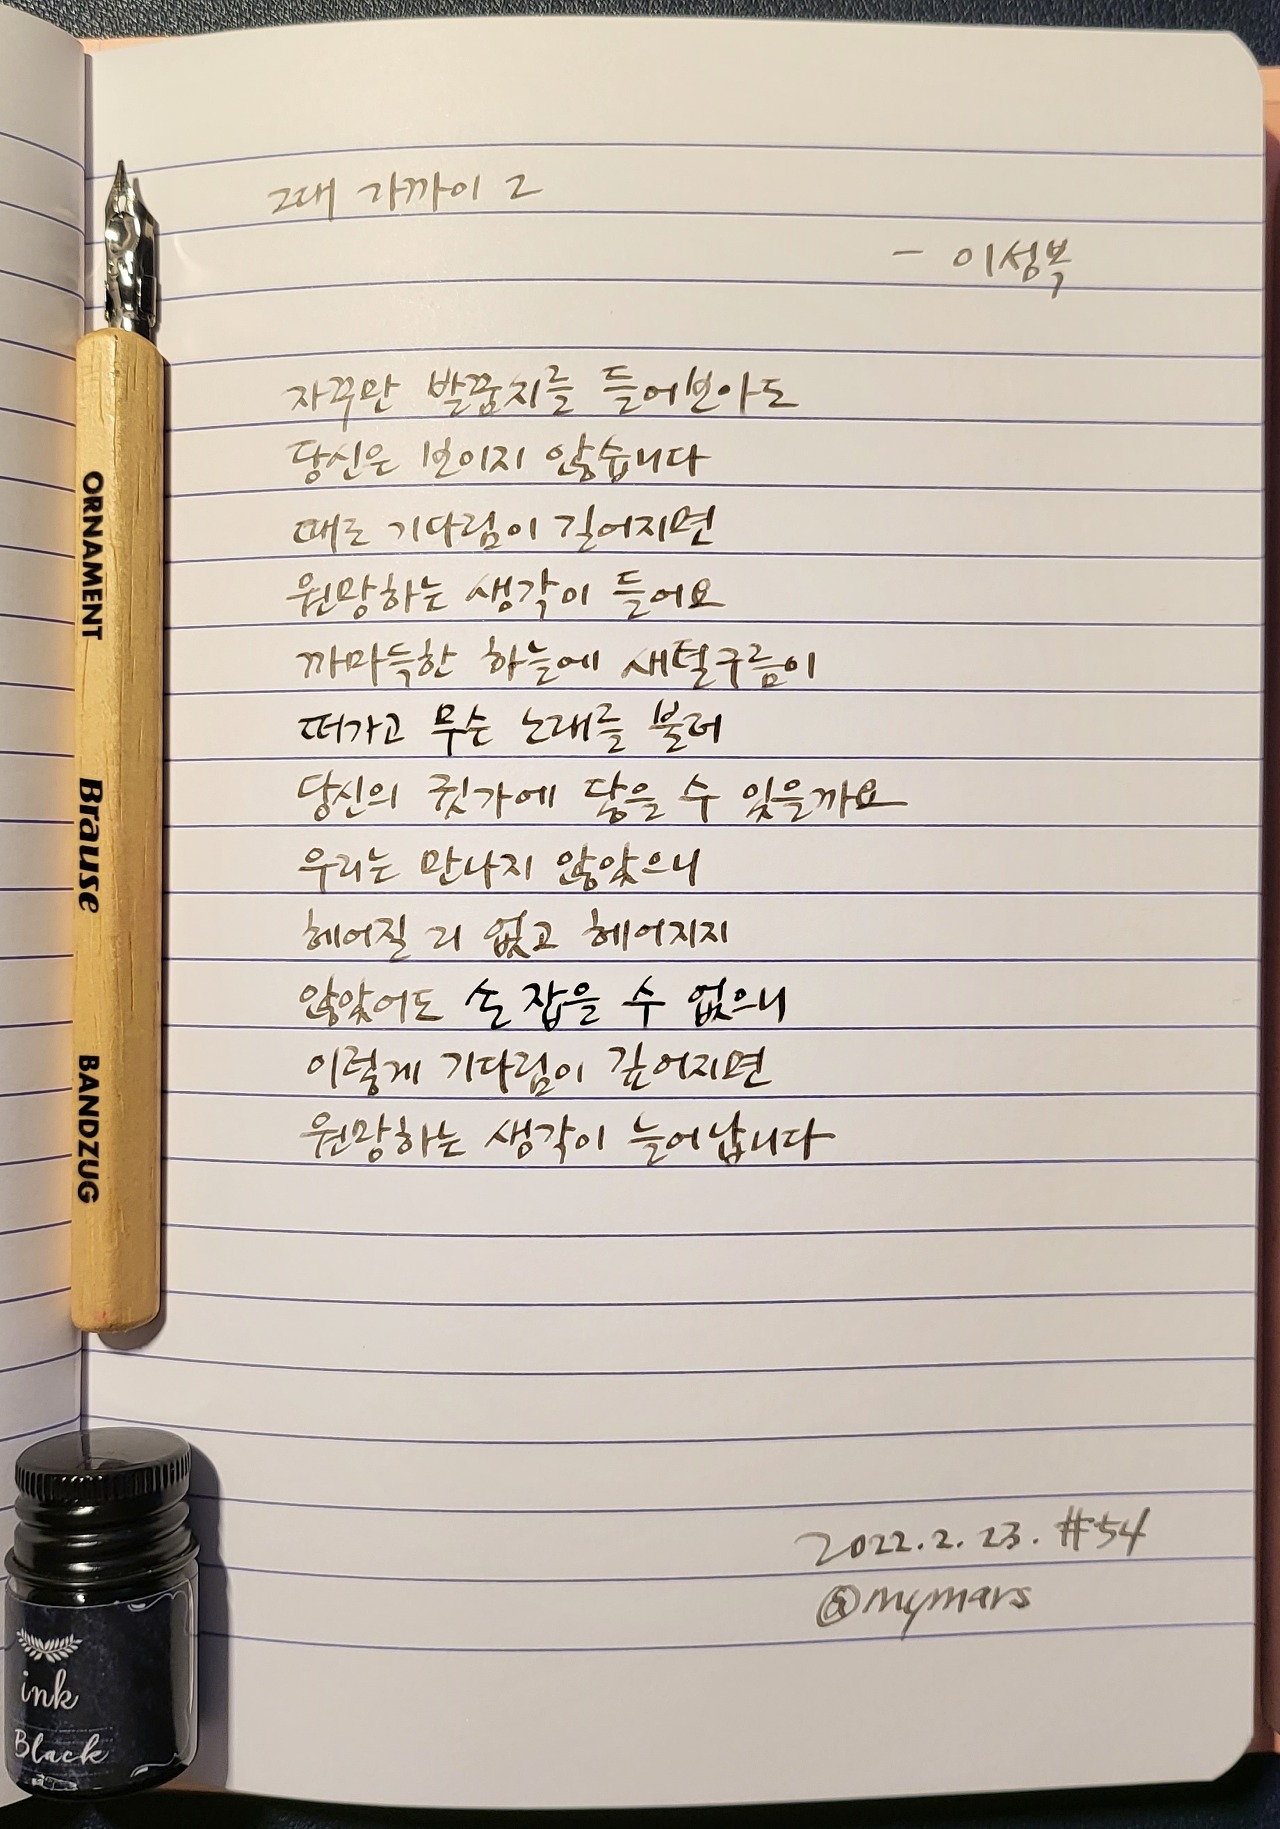 그대 가까이 2
- 이성복
자꾸만 발꿈치를 들어보아도
당신은 보이지 않습니다
때로 기다림이 길어지면
원망하는 생각이 들어요
까마득한 하늘에 새털구름이
떠가고 무슨 노래를 불러
당신의 귓가에 닿을 수 있을까요
우리는 만나지 않았으니
헤어질 리 없고 헤어지지
않았어도 손 잡을 수 없으니
이렇게 기다림이 깊어지면
원망하는 생각이 늘어납니다
2022.2.23. #54
@mymars
ORNAMENT Brause BANDZUG
ink
Black